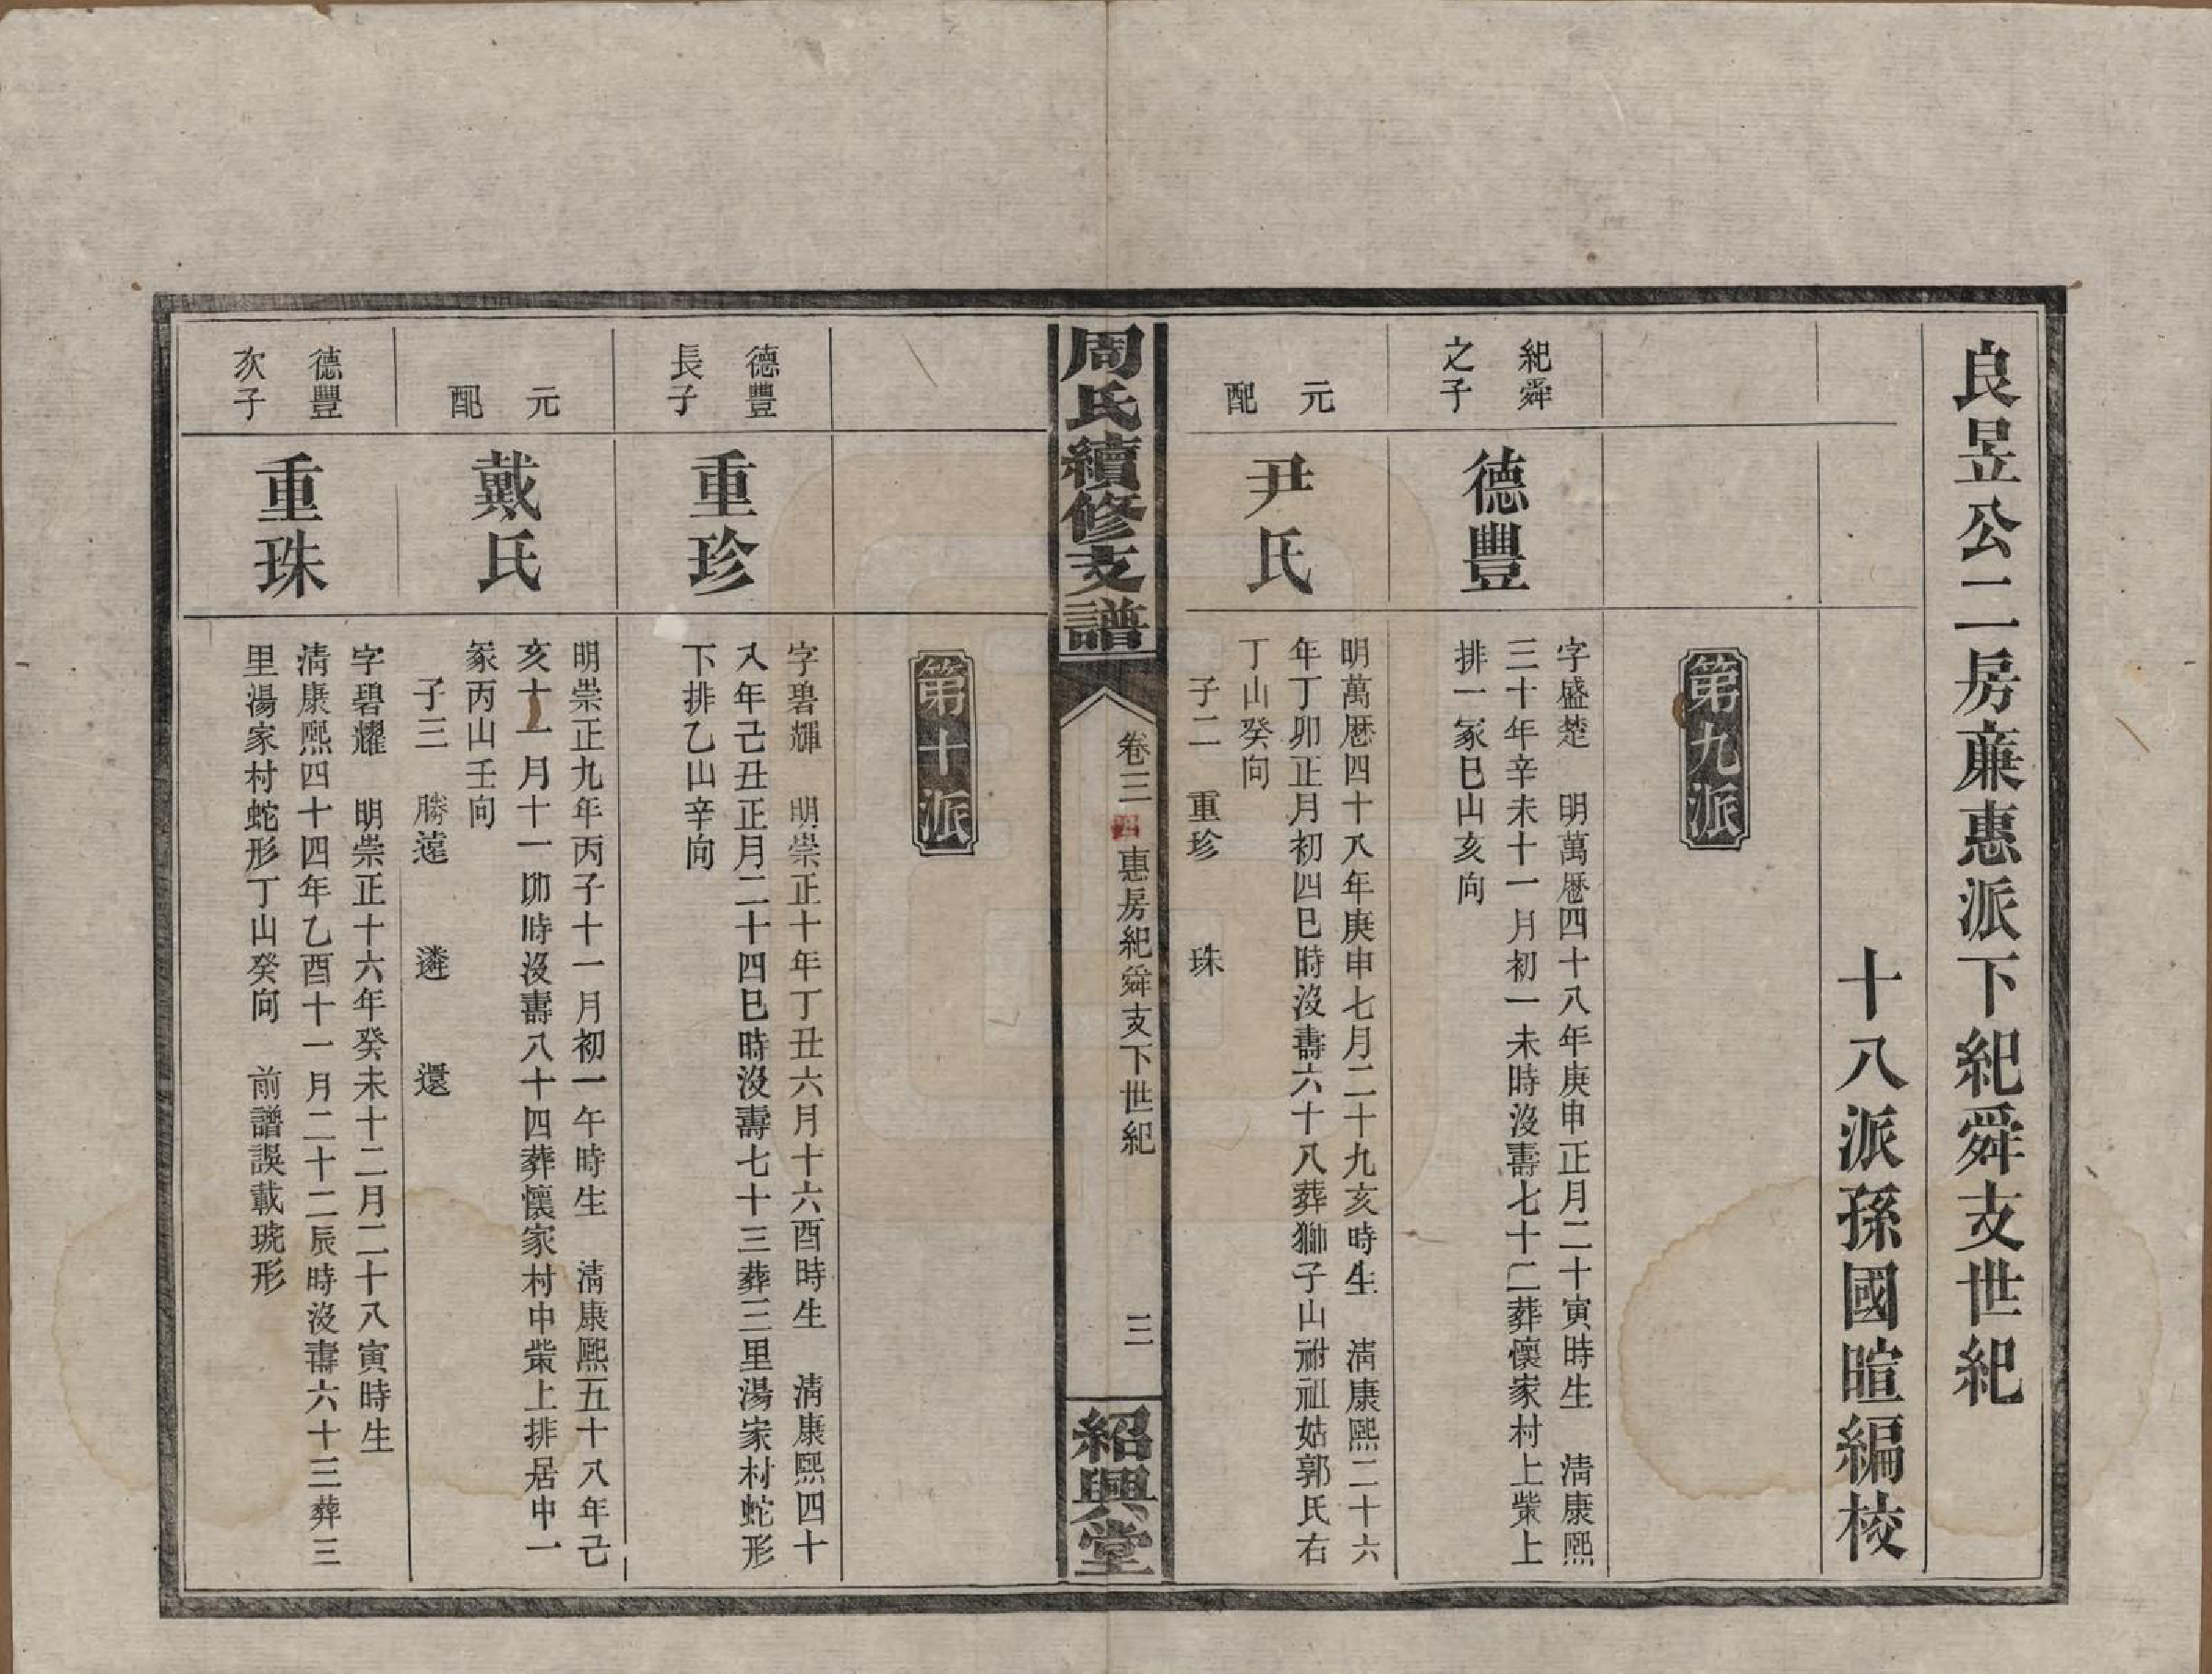 良昱公二房蔗惠派下紀舜支世紀
十八派孫國暄編校
第九派
紀舜
之子
德豐
字盛楚　明萬厯四十八年庚申正月二十寅時生　清康熙
三十年辛未十一月初一未時沒壽七十二葬懷家村上柴上
排一冢巳山亥向
元
配
尹氏
明萬厯四十八年庚申七月二十九亥時生　清康熙二十六
年丁卯正月初四巳時沒壽六十八葬獅子山祔祖姑郭氏右
丁山癸向
子二　重珍　珠
周氏續修支譜
卷三　四　惠房紀舜支下世紀
三
紹興堂
第十派
德豐
長子
重珍
字碧輝　明崇正十年丁丑六月十六酉時生　清康熙四十
八年己丑正月二十四巳時沒壽七十三葬三里湯家村蛇形
下排乙山辛向
元
配
戴氏
明崇正九年丙子十一月初一午時生　清康熙五十八年己
亥十一月十一卯時沒壽八十四葬懷家村中柴上排居中一
冢丙山壬向
子三　勝遠　遴　還
德豐
次子
重珠
字碧耀　明崇正十六年癸未十二月二十八寅時生
清康熙四十四年乙酉十一月二十二辰時沒壽六十三葬三
里湯家村蛇形丁山癸向　前譜誤載琥形